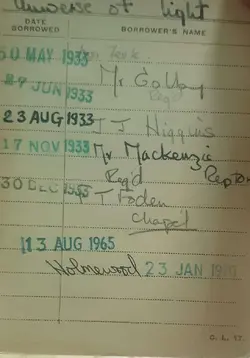 Universe of Light
DATE BORROWED
BORROWER'S NAME
30 MAY 1933
29 JUN 1933 Mr
Reg'd
23 AUG 1933 J J Higgins
17 NOV 1933 Mr Mackenzie
Reg'd
30 DEC 1933 T Foden
Chapel
13 AUG 1965
Holmewood 23 JAN
O. L. 17